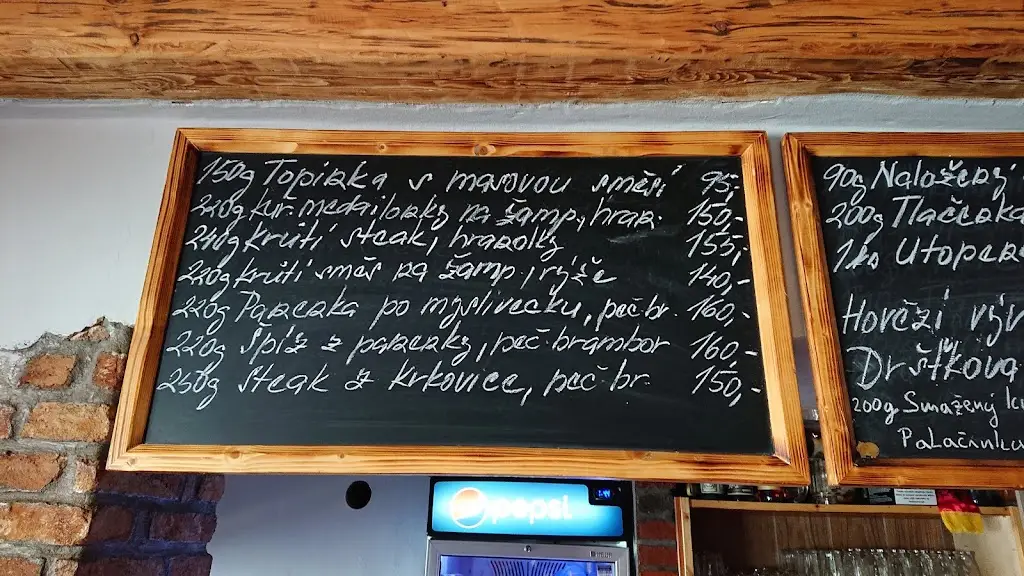 150g Topinka s masovou směsí 95,-
220g kur. medailonky na žamp, hran. 150,-
240g krůtí steak, hranolky 155,-
220g krůtí směs na žamp, rýže 140,-
220g Panenka po myslivecku, peč. br. 160,-
220g Špíz z panenky, peč. brambor 160,-
250g Steak z Krkovice, peč. br. 150,-
90g Naložený
200g Tlačenka
1ks Utopenec
Hovězí výv
Drštková
200g Smažený
Palačinka
pepsi